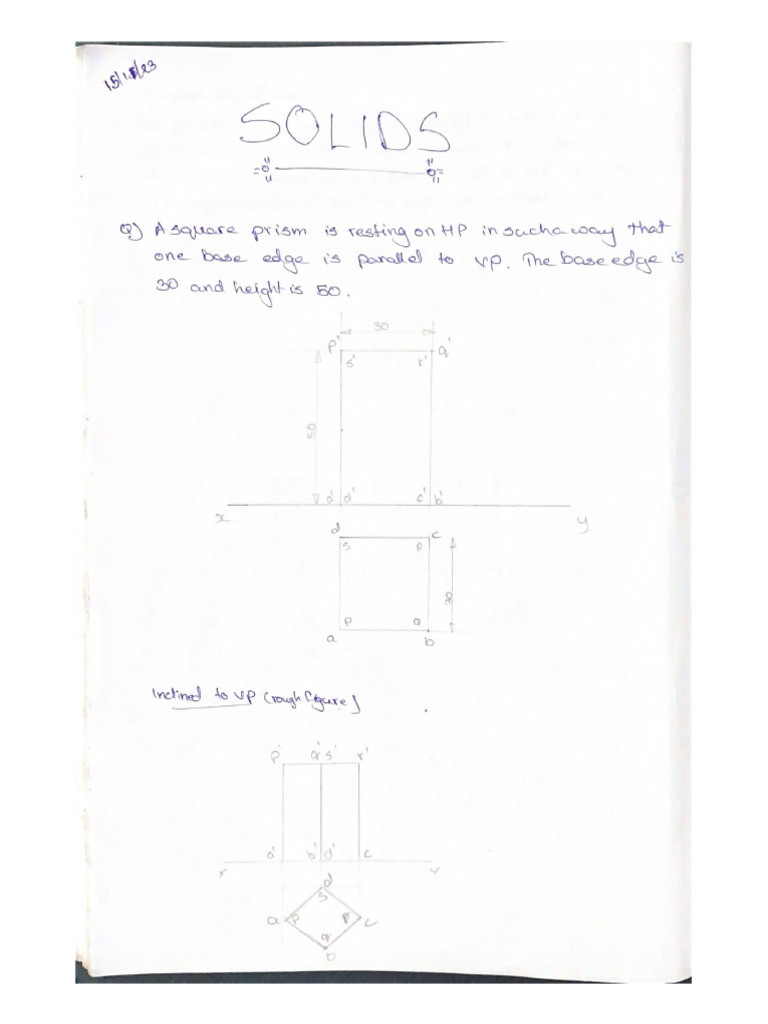 SOLIDS
Q) A square prism is resting on HP in such a way that
one base edge is parallel to VP. The base edge is
30 and height is 50.
30
p' q'
s' r'
50
a' d' c' b'
x y
d c
s r
30
p q
a b
Inclined to VP (rough figure)
p' q' s' r'
a' b' d' c
x y
d
s
a p r c
q
b